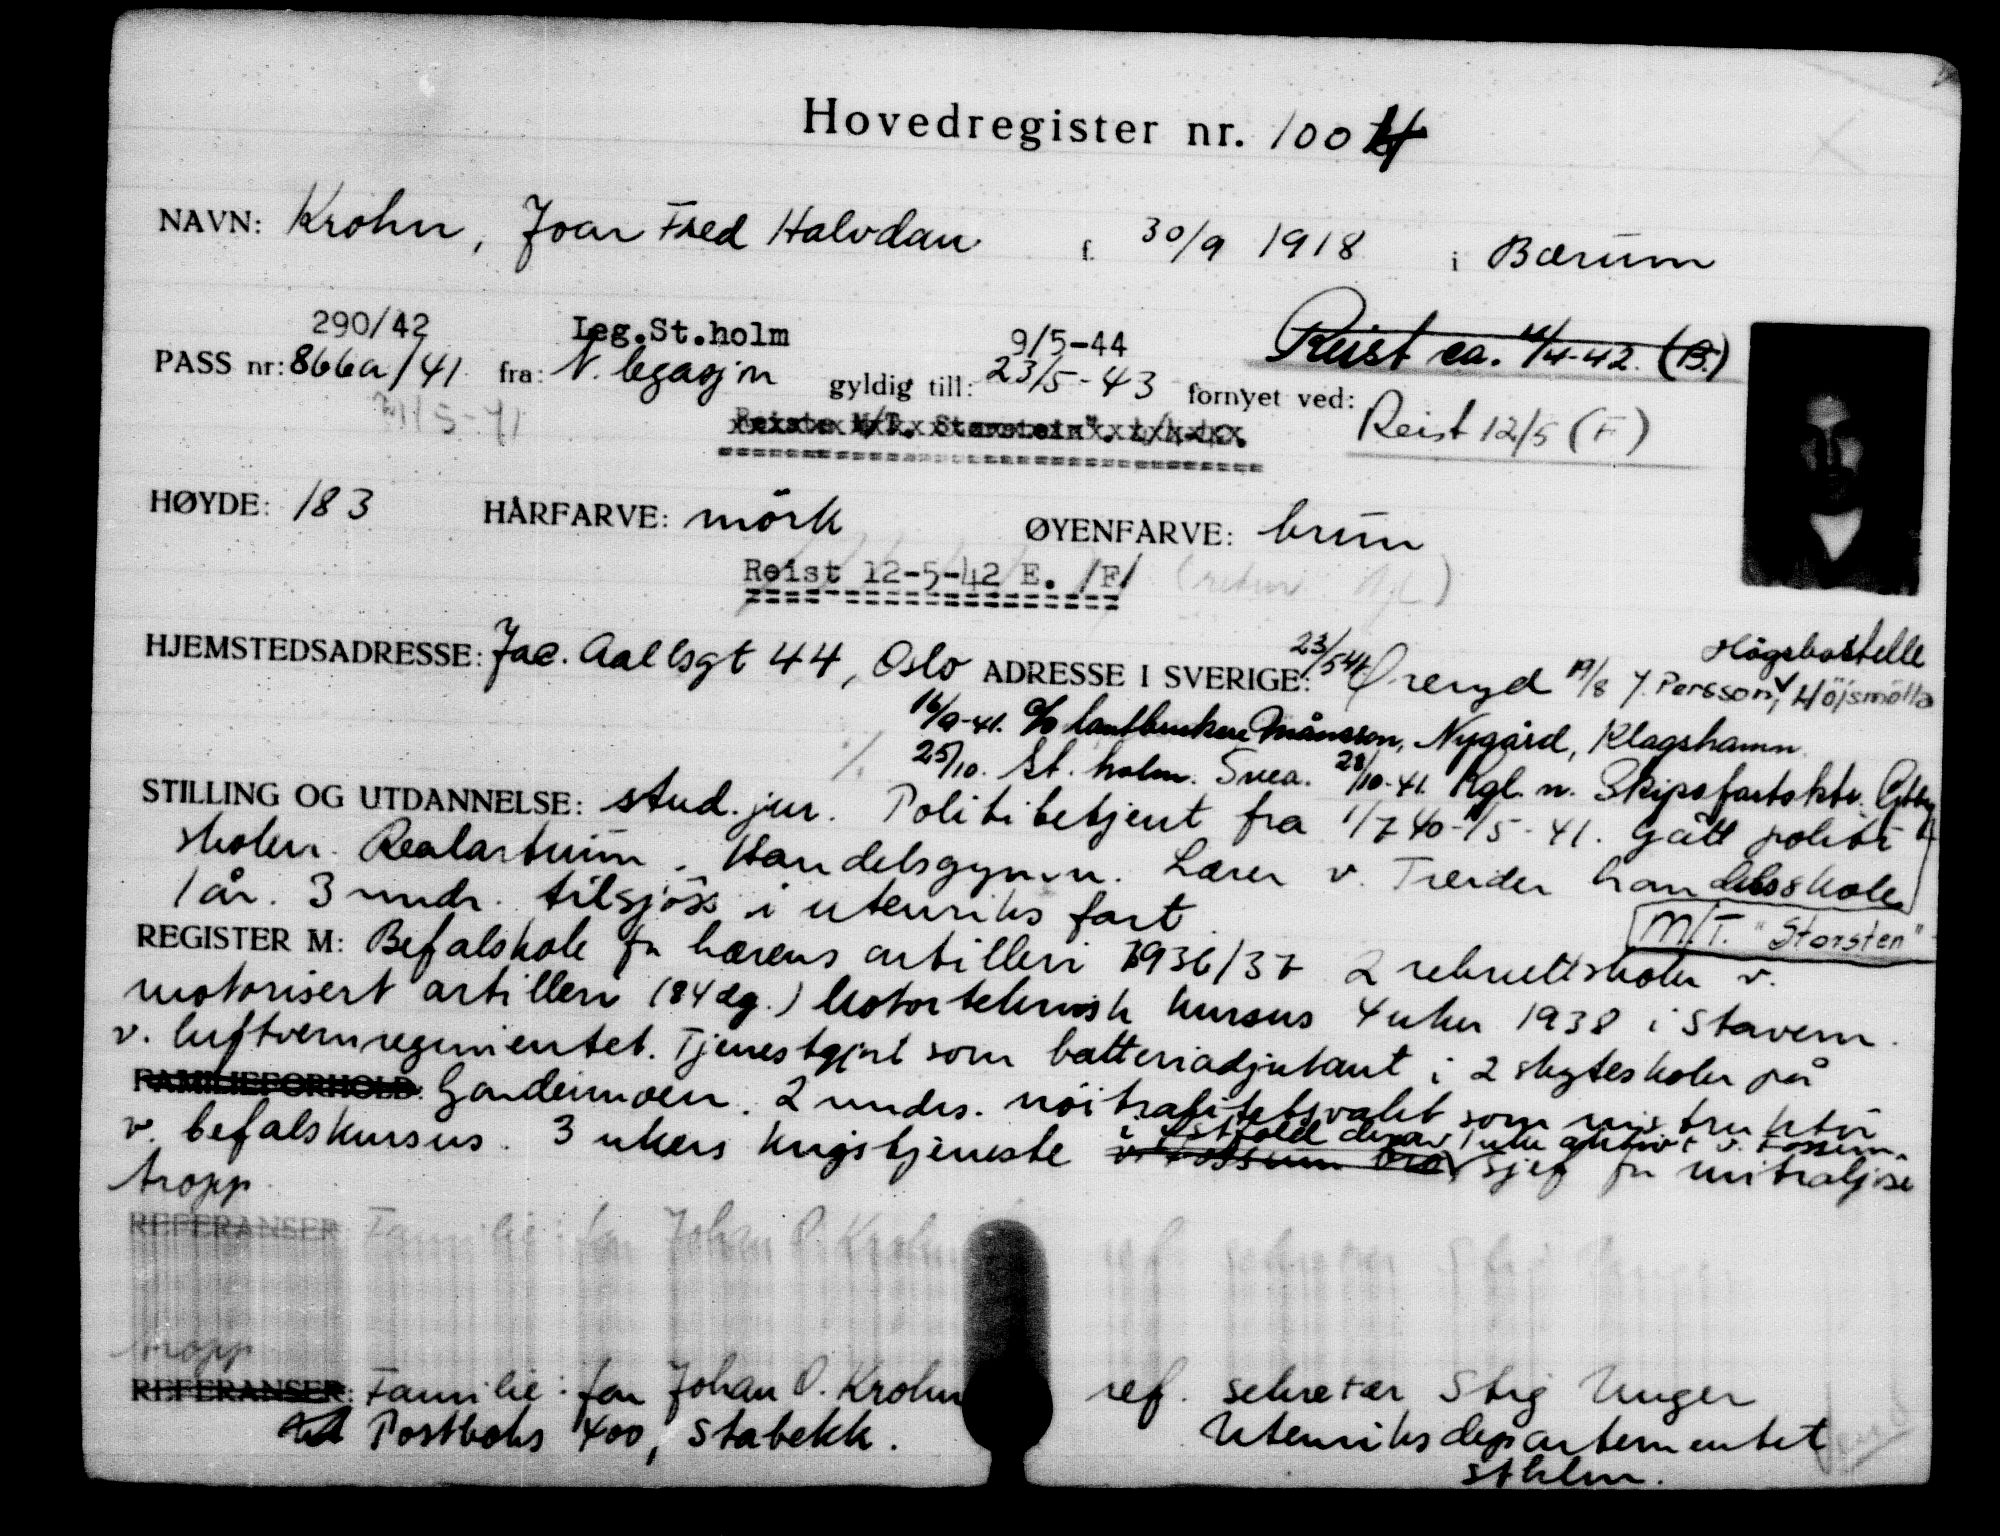 Hovedregister nr. 100
NAVN: Krohn, Joar Fred Halvdan f. 30/9 1918 i Bærum
290/42 Leg.St.holm 9/5-44 Reist ca. 4-42. (B.)
PASS nr: 866a/41 fra: N. legasjon gyldig till: 23/5-43 fornyet ved:
Reiste M/T. Storstein". Reist 12/5 (F)
HØYDE: 183 HÅRFARVE: mörk ØYENFARVE: brun
Reist 12-5-42 E. /F/ (retur)
Högsbostelle
HJEMSTEDSADRESSE: Jac. Aallsgt 44, Oslo ADRESSE I SVERIGE: 23/5 41 Öreryd 19/8 J. Persson, Höjsmölla
16/9-41. c/o lantbrukere Månsson, Nygård, Klagshamn
25/10. St. holm. Svea. 28/10-41. Kgl. n. Skipsfartsktr. Gtbg
STILLING OG UTDANNELSE: stud. jur. Politibetjent fra 1/7 40-1/5-41. Gått politi
skolen. Realartium. Handelsgymn. Lærer v. Treider handelsskole
1 år. 3 mndr. tilsjöss i utenriks fart
M/T. "Storsten"
REGISTER M: Befalskole for hærens artilleri 1936/37 2 rekruttskoler v.
motorisert artilleri (84 dg.) Motorteknisk kursus 4 uker 1938 i Stavern
v. luftvernregimentet. Tjenestgjort som batteriadjutant i 2 skyteskoler på
FAMILIEFORHOLD: Gardermoen. 2 mndrs. nöitralitetsvakt som instruktör
i Östfold derav 1 uke aktivt v. Fossum.
v. befalskursus. 3 ukers krigstjeneste v. Fossum bro sjef for mitraljöse
tropp
REFERANSER: Familie: far Johan O. Krohn
tropp
REFERANSER: Familie: far Johan O. Krohn ref. sekretær Stig Unger
Postboks 400, Stabekk. Utenriksdepartementet
sthlm.